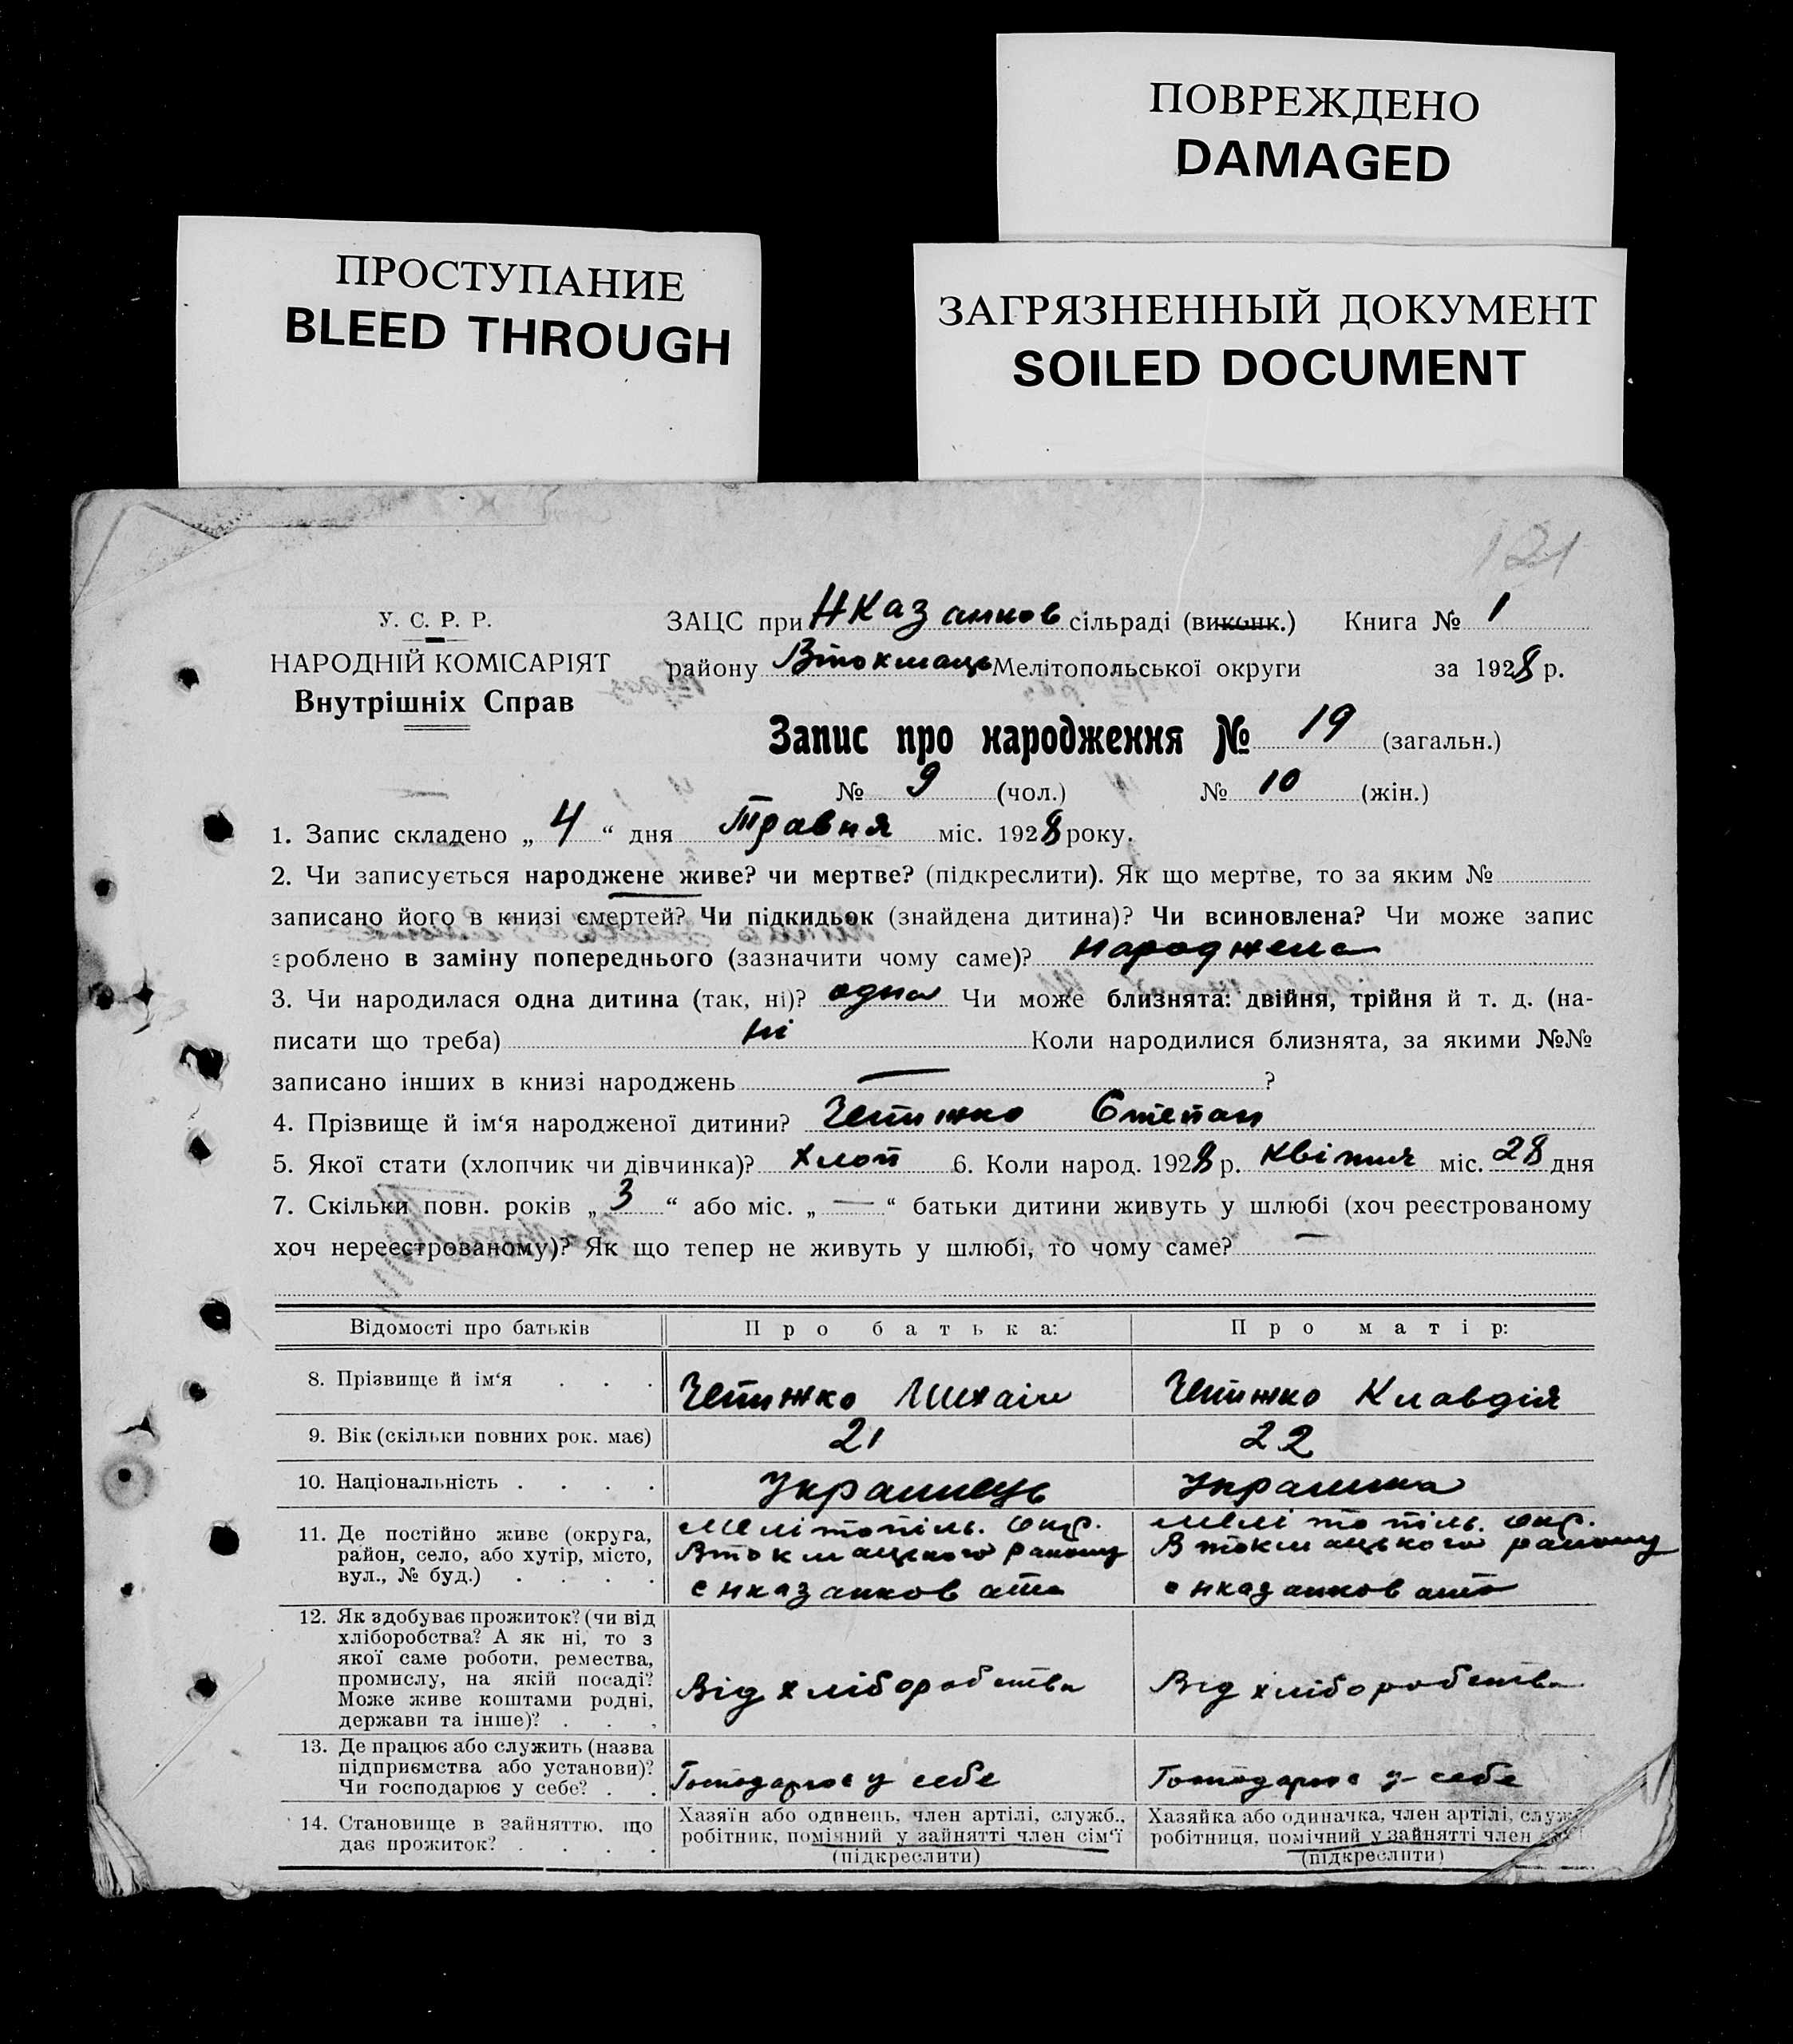 ПОВРЕЖДЕНО
DAMAGED
ПРОСТУПАНИЕ
BLEED THROUGH
ЗАГРЯЗНЕННЫЙ ДОКУМЕНТ
SOILED DOCUMENT
121
У. С. Р. Р.
НАРОДНІЙ КОМІСАРІЯТ
Внутрішніх Справ
ЗАЦС при НКазанков сільраді (виконк.) Книга № 1
району Втокмаць Мелітопольської округи за 1928 р.
Запис про народження № 19 (загальн.)
№ 9 (чол.) № 10 (жін.)
1. Запис складено „ 4 “ дня Травня міс. 1928 року.
2. Чи записується народжене живе? чи мертве? (підкреслити). Як що мертве, то за яким №
записано його в книзі смертей? Чи підкидьок (знайдена дитина)? Чи всиновлена? Чи може запис
зроблено в заміну попереднього (зазначити чому саме)? народжена
3. Чи народилася одна дитина (так, ні)? одна Чи може близнята: двійня, трійня й т. д. (на-
писати що треба) ні Коли народилися близнята, за якими №№
записано інших в книзі народжень — ?
4. Прізвище й ім‘я народженої дитини? Чепижко Степан
5. Якої стати (хлопчик чи дівчинка)? хлоп 6. Коли народ. 1928 р. квітня міс. 28 дня
7. Скільки повн. років „ 3 “ або міс. „ — “ батьки дитини живуть у шлюбі (хоч реєстрованому
хоч нереестрованому)? Як що тепер не живуть у шлюбі, то чому саме? —
Відомості про батьків Про батька: Про матір:
8. Прізвище й ім‘я . . . Чепижко Михаіл Чепижко Клавдія
9. Вік (скільки повних рок. має) 21 22
10. Національність . . . . Украинець Украинка
11. Де постійно живе (округа, район, село, або хутір, місто, вул., № буд.) . . . .
Мелітопіль. окр.
Втокмацького району
с нказанковата
Мелітопіль. окр.
Втокмацького району
с нказанковата
12. Як здобуває прожиток? (чи від
хліборобства? А як ні, то з
якої саме роботи, ремества,
промислу, на якій посаді?
Може живе коштами родні,
держави та інше)? . . .
Від хліборобства Від хліборобства
13. Де працює або служить (назва
підприємства або установи)?
Чи господарює у себе? . .
Господарює у себе Господарює у себе
14. Становище в зайняттю, що
дає прожиток? . . . .
Хазяїн або одинець, член артілі, служб.,
робітник, помічний у зайнятті член сім‘ї
(підкреслити)
Хазяйка або одиначка, член артілі, служ
робітниця, помічний у зайнятті член
(підкреслити)